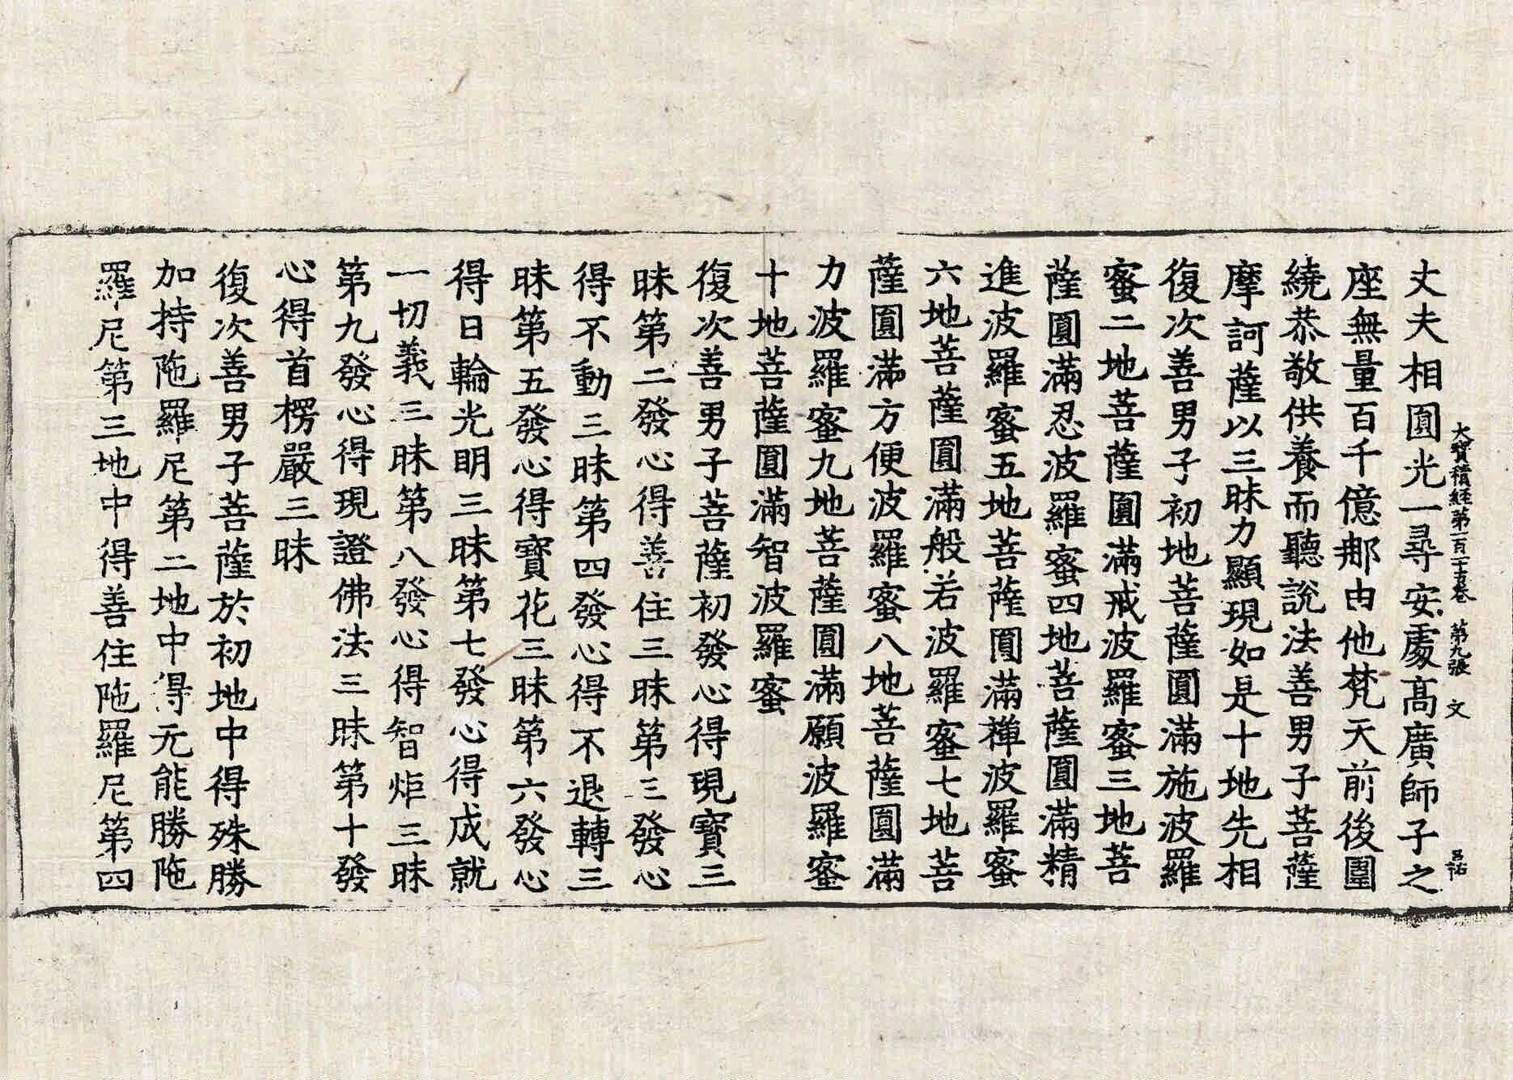 大寶積経第一百一十五卷 第九張 文
丈夫相圓光一尋安處高廣師子之
座無量百千億那由他梵天前後圍
繞恭敬供養而聽說法善男子菩薩
摩訶薩以三昧力顯現如是十地先相
復次善男子初地菩薩圓滿施波羅
蜜二地菩薩圓滿戒波羅蜜三地菩
薩圓滿忍波羅蜜四地菩薩圓滿精
進波羅蜜五地菩薩圓滿禪波羅蜜
六地菩薩圓滿般若波羅蜜七地菩
薩圓滿方便波羅蜜八地菩薩圓滿
力波羅蜜九地菩薩圓滿願波羅蜜
十地菩薩圓滿智波羅蜜
復次善男子菩薩初發心得現寶三
昧第二發心得善住三昧第三發心
得不動三昧第四發心得不退轉三
昧第五發心得寶花三昧第六發心
得日輪光明三昧第七發心得成就
一切義三昧第八發心得智炬三昧
第九發心得現證佛法三昧第十發
心得首楞嚴三昧
復次善男子菩薩於初地中得殊勝
加持陁羅尼第二地中得无能勝陁
羅尼第三地中得善住陁羅尼第四